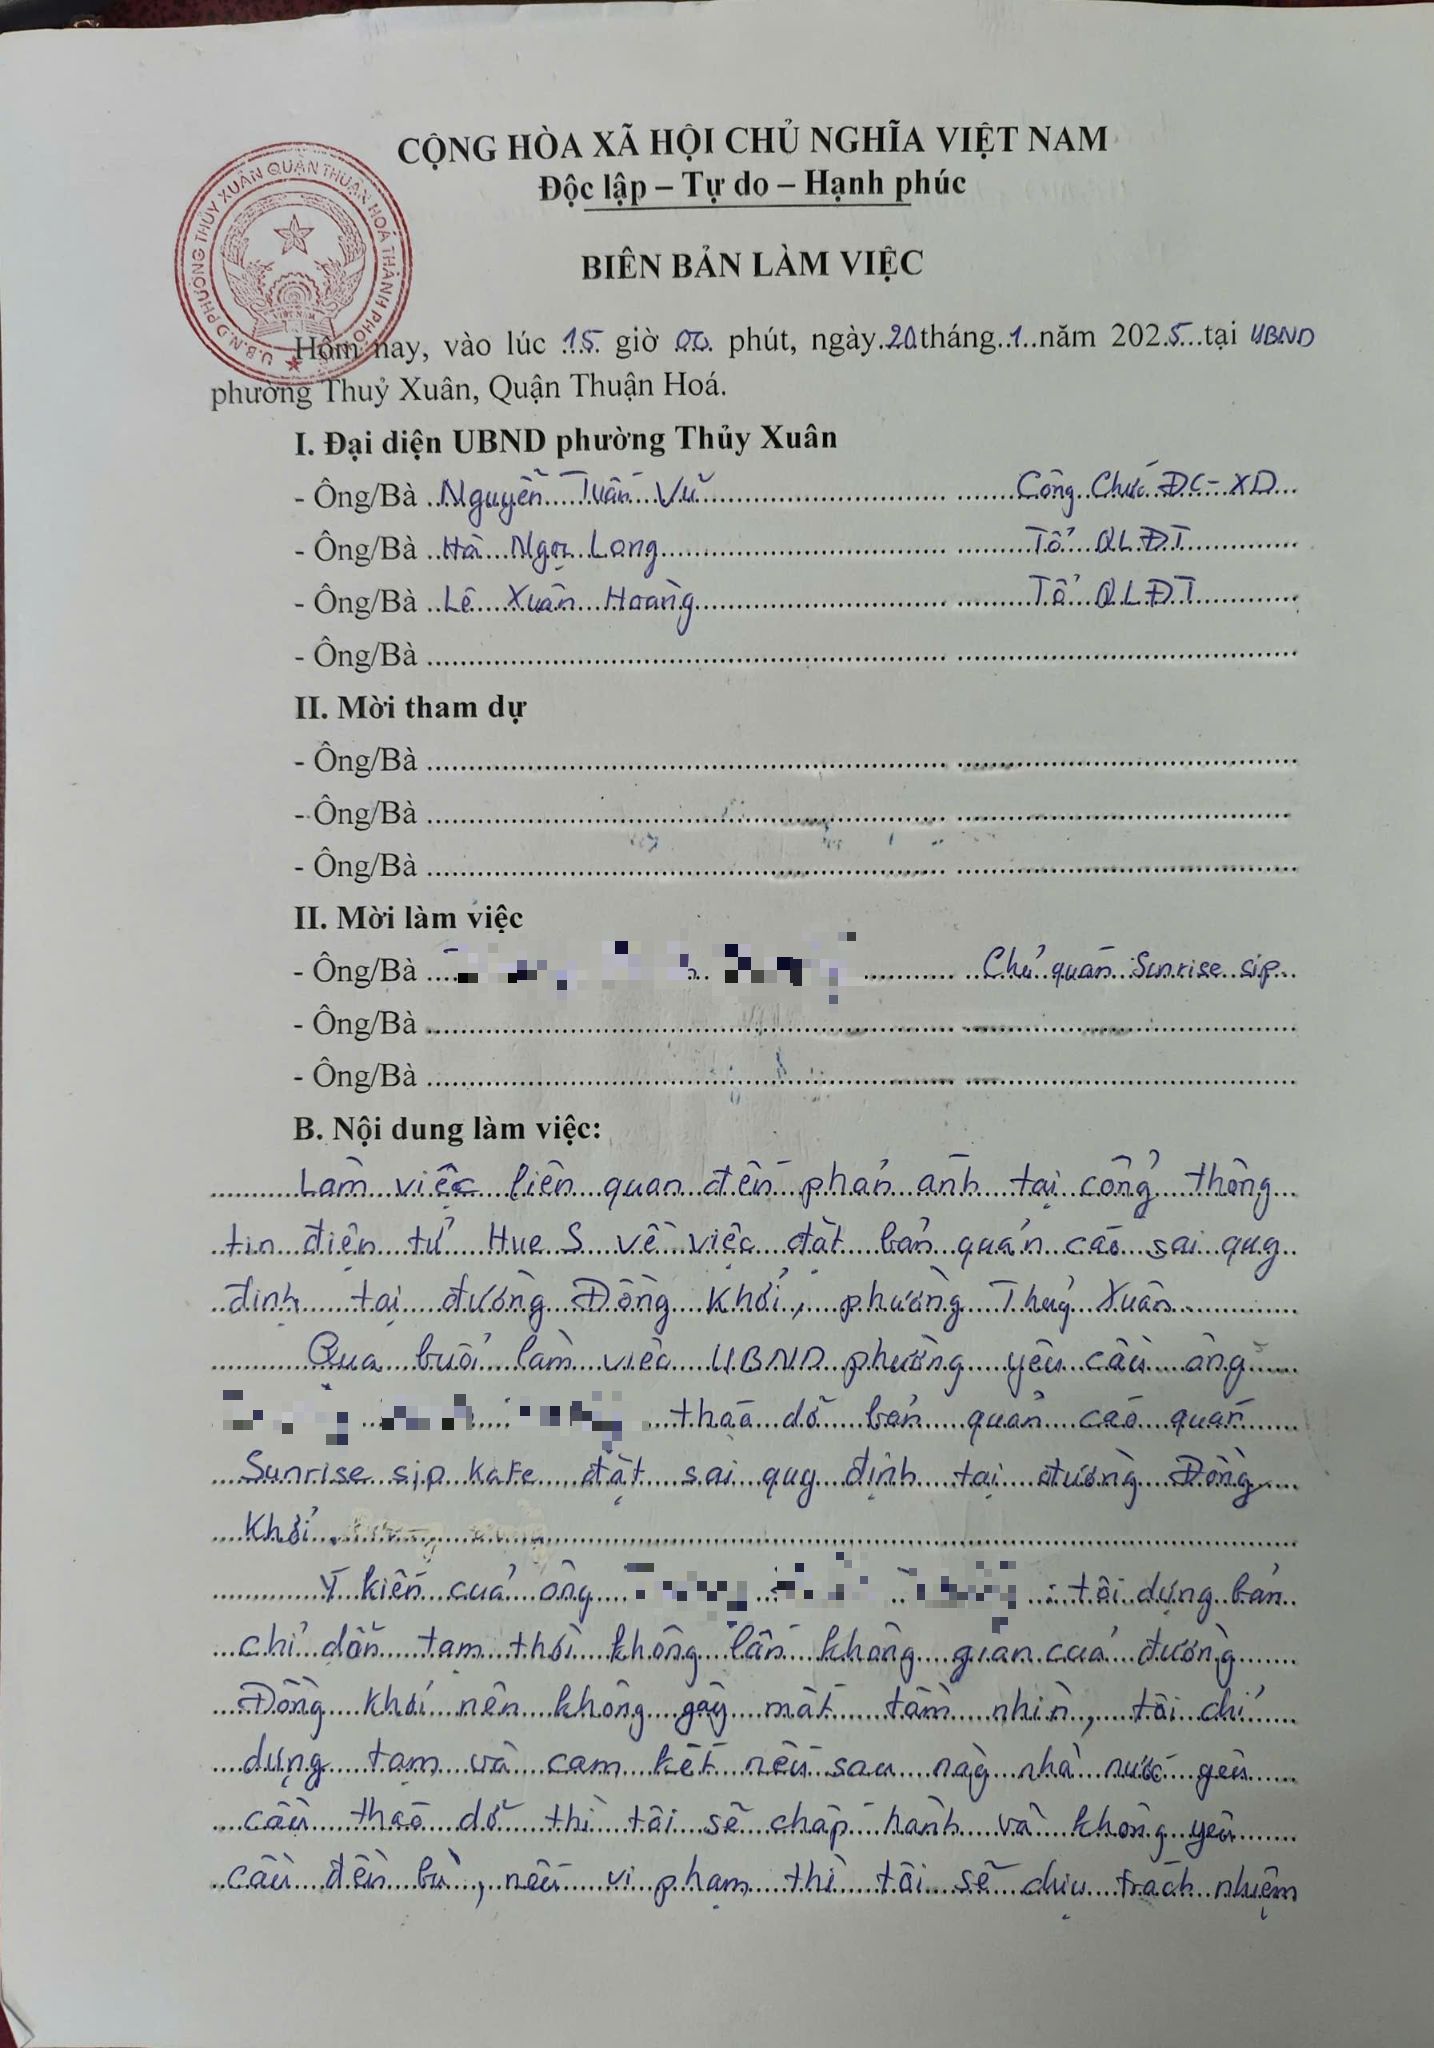 CỘNG HÒA XÃ HỘI CHỦ NGHĨA VIỆT NAM
Độc lập – Tự do – Hạnh phúc
U.B.N.D PHƯỜNG THỦY XUÂN QUẬN THUẬN HOÁ THÀNH PHỐ
VIỆT NAM
BIÊN BẢN LÀM VIỆC
Hôm nay, vào lúc 15 giờ 00 phút, ngày 20 tháng 1 năm 2025 tại UBND
phường Thuỷ Xuân, Quận Thuận Hoá.
I. Đại diện UBND phường Thủy Xuân
- Ông/Bà Nguyễn Tuấn Vũ Công Chức ĐC-XD
- Ông/Bà Hà Ngọc Long Tổ QLĐT
- Ông/Bà Lê Xuân Hoàng Tổ QLĐT
- Ông/Bà
II. Mời tham dự
- Ông/Bà
- Ông/Bà
- Ông/Bà
II. Mời làm việc
- Ông/Bà Chủ quán Sunrise sip
- Ông/Bà
- Ông/Bà
B. Nội dung làm việc:
Làm việc liên quan đến phản ánh tại cổng thông
tin điện tử Hue S về việc đặt bản quản cáo sai quy
định tại đường Đồng Khởi, phường Thuỷ Xuân
Qua buổi làm việc UBND phường yêu cầu ông
tháo dỡ bản quản cáo quán
Sunrise sip kafe đặt sai quy định tại đường Đồng
Khởi
Ý kiến của ông : tôi dựng bản
chỉ dẫn tạm thời không lấn không gian của đường
Đồng khởi nên không gây mất tầm nhìn, tôi chỉ
dựng tạm và cam kết nếu sau này nhà nước yêu
cầu tháo dỡ thì tôi sẽ chấp hành và không yêu
cầu đền bù, nếu vi phạm thì tôi sẽ chịu trách nhiệm